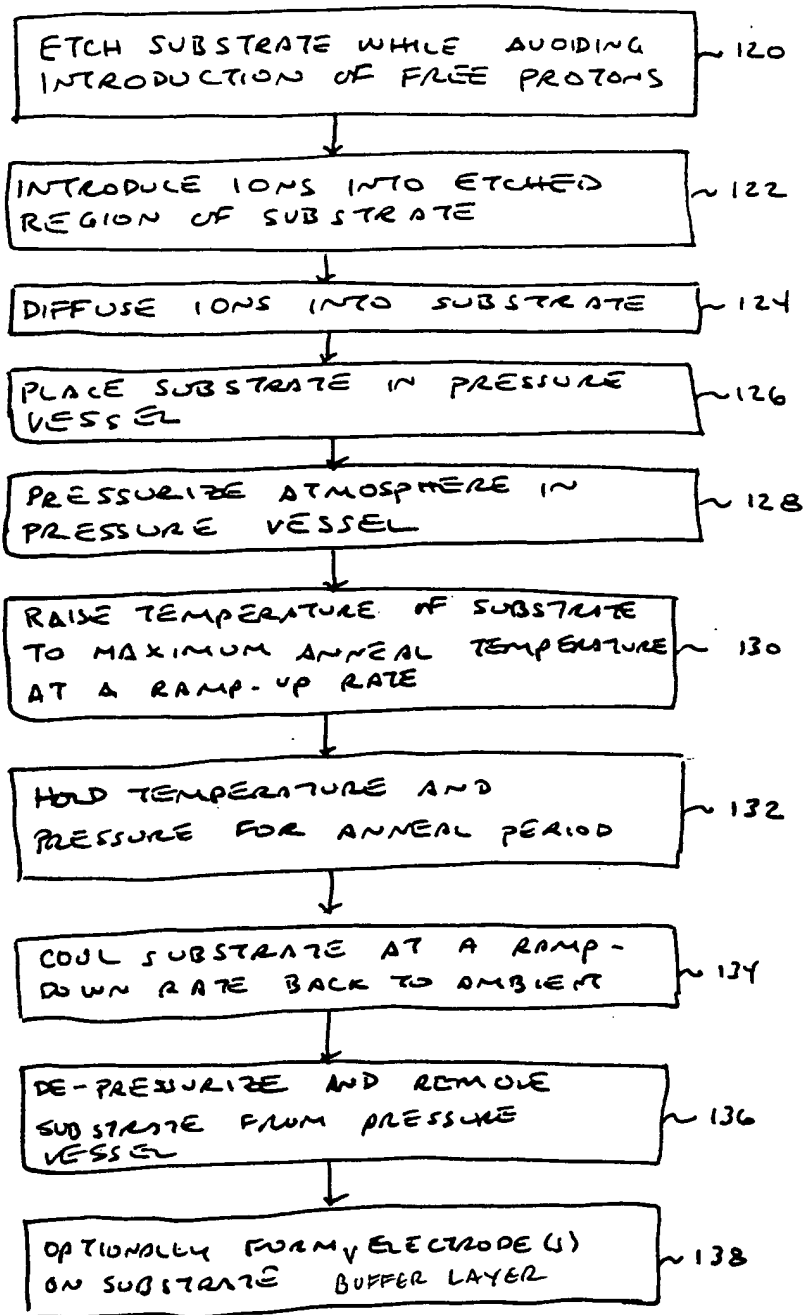 ETCH SUBSTRATE WHILE AVOIDING
INTRODUCTION OF FREE PROTONS
120
INTRODUCE IONS INTO ETCHED
REGION OF SUBSTRATE
122
DIFFUSE IONS INTO SUBSTRATE
124
PLACE SUBSTRATE IN PRESSURE
VESSEL
126
PRESSURIZE ATMOSPHERE IN
PRESSURE VESSEL
128
RAISE TEMPERATURE OF SUBSTRATE
TO MAXIMUM ANNEAL TEMPERATURE
AT A RAMP-UP RATE
130
HOLD TEMPERATURE AND
PRESSURE FOR ANNEAL PERIOD
132
COOL SUBSTRATE AT A RAMP-
DOWN RATE BACK TO AMBIENT
134
DE-PRESSURIZE AND REMOVE
SUBSTRATE FROM PRESSURE
VESSEL
136
OPTIONALLY FORM ELECTRODE(S)
ON SUBSTRATE BUFFER LAYER
138